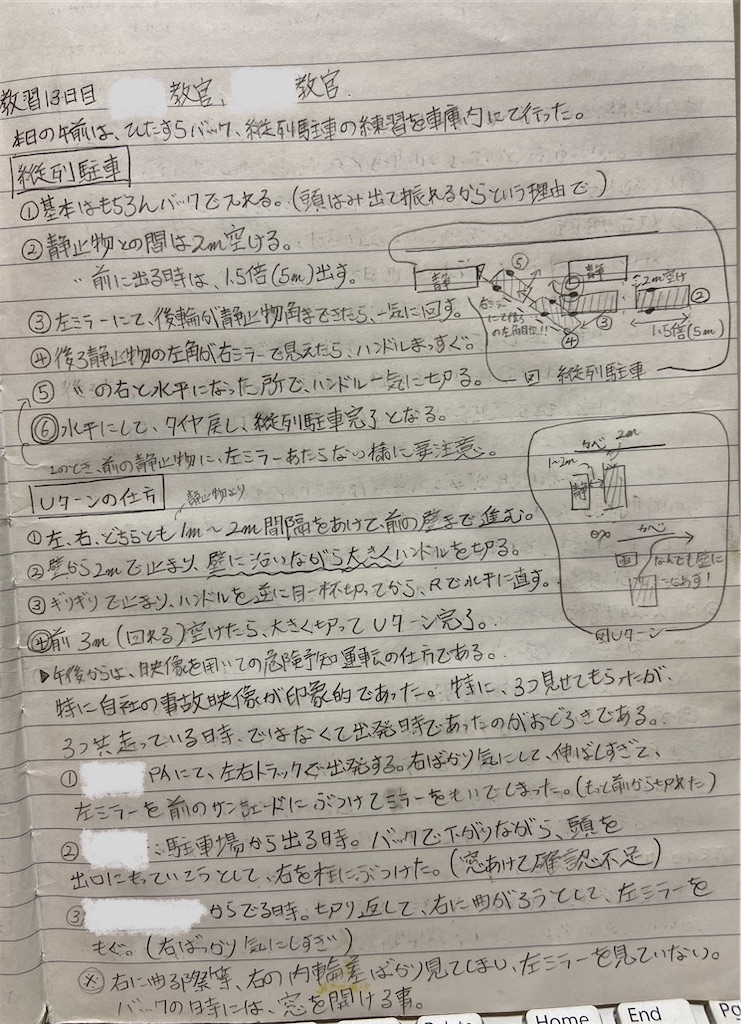 教習13日目 教官、 教官.
本日の午前は、ひたすらバック、縦列駐車の練習を車庫内にて行った。
縦列駐車
①基本はもちろんバックで入れる。(頭はみ出て振れるからという理由で)
②静止物との間は2m空ける。
〃前に出る時は、1.5倍(5m)出す。
③左ミラーにて、後輪が静止物角まできたら、一気に回す。
④後ろ静止物の左角が右ミラーで見えたら、ハンドルまっすぐ。
⑤ 〃 の右と水平になった所で、ハンドル一気に切る。
⑥水平にして、タイヤ戻し、縦列駐車完了となる。
このとき、前の静止物に、左ミラーあたらない様に要注意。
静
⑤
静
⑥
2m空け
②
③
④
1.5倍(5m)
右ミラー
図 縦列駐車
Uターンの仕方
静止物より
①左、右、どちらとも1m~2m間隔をあけて、前の壁まで進む。
②壁から2mで止まり、壁に沿いながら大きくハンドルを切る。
③ギリギリで止まり、ハンドルを逆に目一杯切ってから、Rで水平に直す。
④前3m(回れる)空けたら、大きく切ってUターン完了。
カベ
2m
1~2m
静
カベ
なんでも壁に
図Uターン
▶午後からは、映像を用いての危険予知運転の仕方である。
特に自社の事故映像が印象的であった。特に、3つ見せてもらったが、
3つ共走っている時、ではなくて出発時であったのがおどろきである。
① PAにて、左右トラックで出発する。右ばかり気にして、伸ばしすぎて、
左ミラーを前のサンドにぶつけてミラーをもいでしまった。(もって前から切れた)
② 駐車場から出る時。バックで下がりながら、頭を
出口にもっていこうとして、右を柱にぶつけた。(窓あけて確認不足)
③ からでる時。切り返して、右に曲がろうとして、左ミラーを
もぐ。(右ばっかり気にしすぎ)
※右に曲る際等、右の内輪差ばかり見てしまい、左ミラーを見ていない。
バックの時には、窓を開ける事。
Home
End